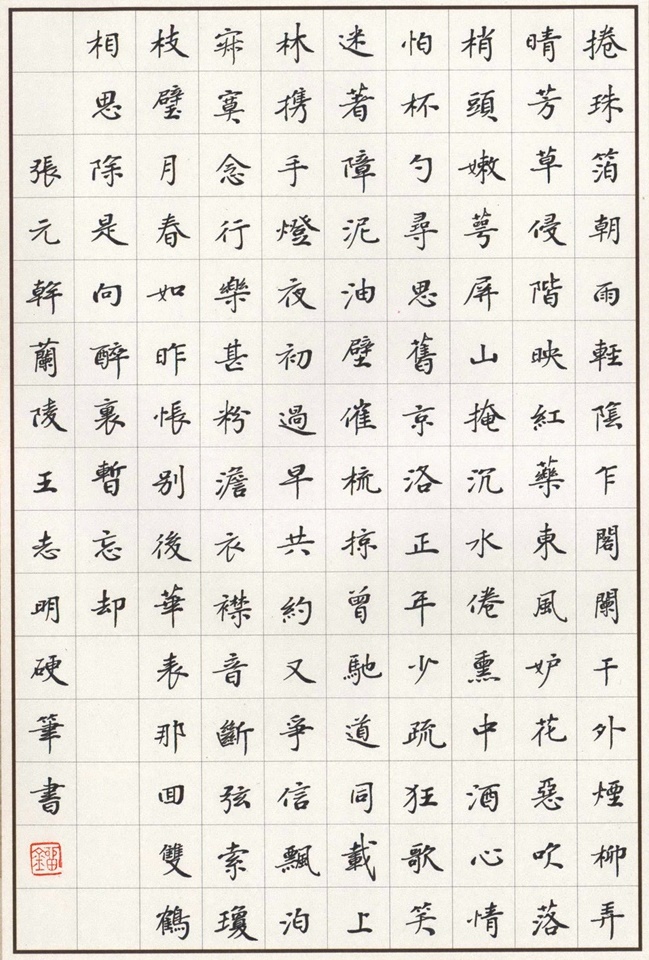 捲珠箔朝雨輕陰乍閣闌干外煙柳弄
晴芳草侵階映紅藥東風妒花惡吹落
梢頭嫩萼屏山掩沉水倦熏中酒心情
怕杯勺尋思舊京洛正年少疏狂歌笑
迷著障泥油壁催梳掠曾馳道同載上
林携手燈夜初過早共約又爭信飄泊
寂寞念行樂甚粉澹衣襟音斷弦索瓊
枝璧月春如昨悵別後華表那囬雙鶴
相思除是向醉裏暫忘却
張元幹蘭陵王志明硬筆書